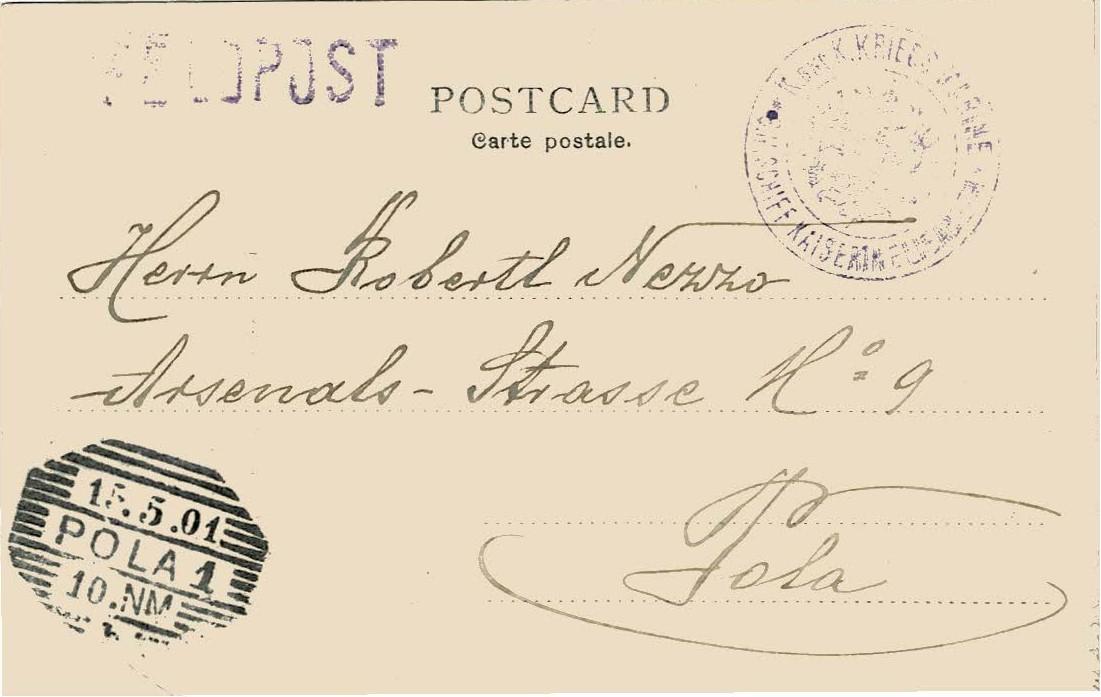 FELDPOST
POSTCARD
Carte postale.
K. und K. KRIEGSMARINE
S.M. SCHIFF KAISERIN ELISABETH
Herrn Robertl Nezzo
Arsenals-Strasse No 9
Pola
15.5.01
POLA 1
10.NM